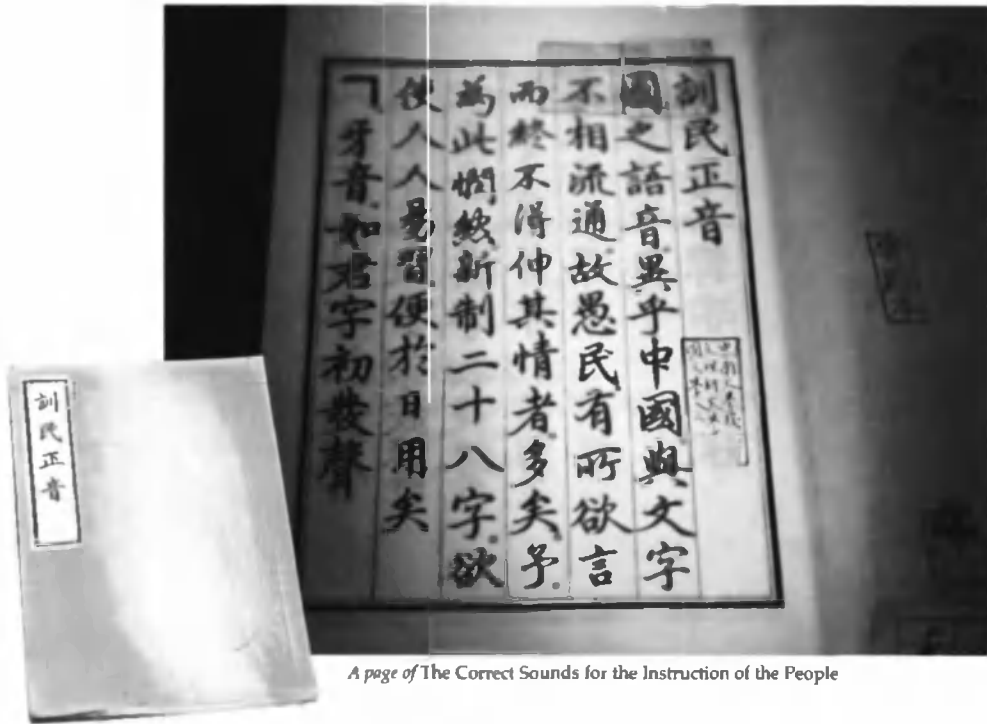 訓民正音
國之語音異乎中國與文字
不相流通故愚民有所欲言
而終不得伸其情者多矣予
為此憫然新制二十八字欲
使人人易習便於日用矣
ㄱ牙音如君字初發聲
訓民正音
A page of The Correct Sounds for the Instruction of the People